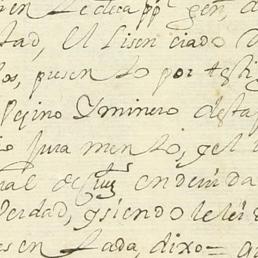 te deca pp.
tad, El Lisen ciado
os, presento por testi
Vecino Y minero desta
Jura mento, y el
nal de Cruz en devida
Verdad, y siendo le lei
esen tada, dixo=